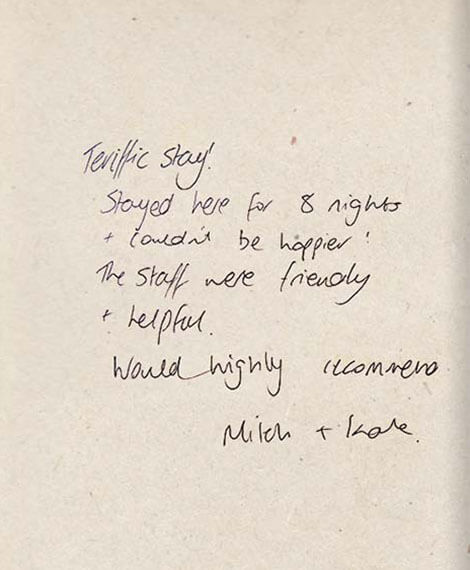 Teriffic stay!
Stayed here for 8 nights
+ couldn't be happier!
The staff were friendly
+ helpful.
Would highly recommend
Mitch + Kate.